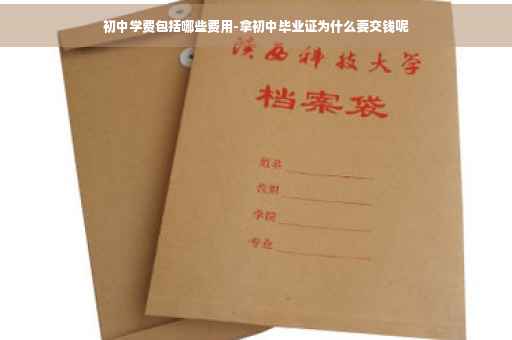 初中学费包括哪些费用-拿初中毕业证为什么要交钱呢
陕西科技大学
档案袋
姓名
学院
专业